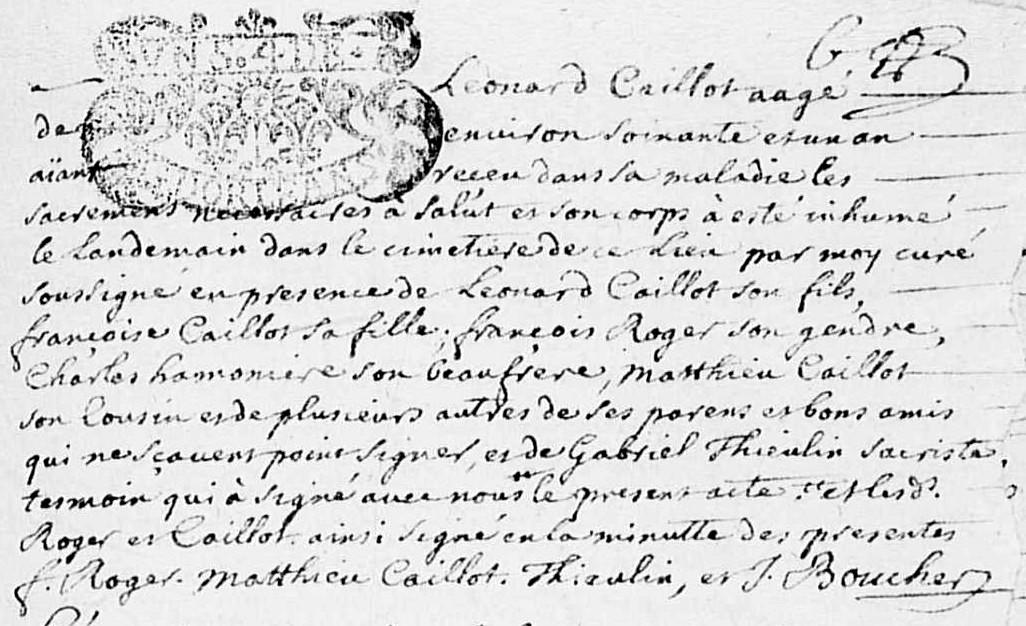 Leonard Caillot aagé
de environ soixante et un an
aïant receu dans sa maladie les
sacrements necessaires à salut et son corps à esté inhumé
le Landemain dans le cimetiere de ce Lieu par moy curé
soussigné en presence de Leonard Caillot son fils,
françoise Caillot sa fille, françois Roger son gendre,
Charles hamoniere son beaufrere, Matthieu Caillot
son Cousin et de plusieurs autres de ses parens et bons amis
qui ne sçavent point signer, et de Gabriel Thieulin sacriste,
tesmoin qui à signé avec nous le present acte et lesd.
Roger et Caillot. ainsi signé en la minutte des presentes
f. Roger. Matthieu Caillot. Thieulin, et J. Boucher